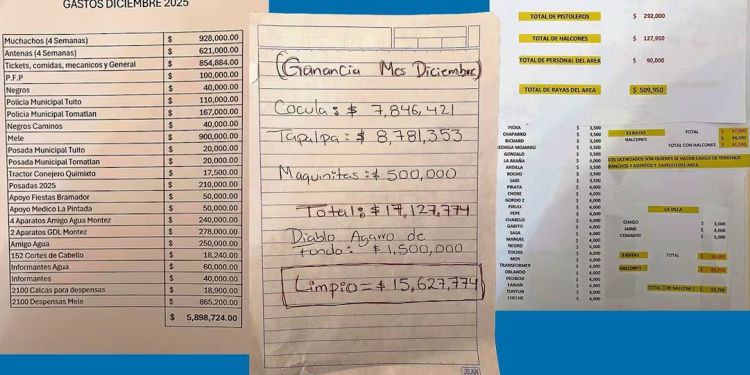 GASTOS DICIEMBRE 2025
Muchachos (4 Semanas) $ 928,000.00
Antenas (4 Semanas) $ 621,000.00
Tickets, comidas, mecanicos y General $ 854,884.00
P.F.P $ 100,000.00
Negros $ 40,000.00
Policia Municipal Tuito $ 110,000.00
Policia Municipal Tomatlan $ 167,000.00
Negros Caminos $ 40,000.00
Mele $ 900,000.00
Posada Municipal Tuito $ 20,000.00
Posada Municipal Tomatlan $ 20,000.00
Tractor Conejero Quimixto $ 17,500.00
Posadas 2025 $ 210,000.00
Apoyo Fiestas Bramador $ 50,000.00
Apoyo Medico La Pintada $ 50,000.00
4 Aparatos Amigo Agua Montez $ 240,000.00
2 Aparatos GDL Montez $ 278,000.00
Amigo Agua $ 250,000.00
152 Cortes de Cabello $ 18,240.00
Informantes Agua $ 60,000.00
Informantes $ 40,000.00
2100 Calcas para despensas $ 18,900.00
2100 Despensas Mele $ 865,200.00
$ 5,898,724.00
(Ganancia Mes Diciembre)
Cocula: $ 7,846,421
Tapalpa: $ 8,781,353
Maquinitas: $ 500,000
Total: $ 17,127,774
Diablo Agarro de
fondo: $ 1,500,000
Limpio = $ 15,627,774
TOTAL DE PISTOLEROS $ 292,000
TOTAL DE HALCONES $ 127,950
TOTAL DE PERSONAL DEL AREA $ 90,000
TOTAL DE RAYAS DEL AREA $ 509,950
PICHA $ 3,500
CHAPARRO $ 3,500
RICHARD $ 3,500
GONZALO $ 3,500
LA ARAÑA $ 4,000
ARDILLA $ 3,500
BOCHO $ 3,500
SAID $ 3,500
PIRATA $ 4,000
CHORE $ 4,000
GORDO 2 $ 4,000
PIRULI $ 4,000
PEPE $ 4,000
CHABELO $ 4,000
GABITO $ 4,000
SASA $ 4,000
MANUEL $ 4,000
NEGRO $ 4,000
TOCHIS $ 4,000
MOY $ 4,000
TRANSFORMER $ 4,000
ORLANDO $ 4,000
PICHICHI $ 4,000
FABIAN $ 4,000
TUNTUN $ 4,000
CHECHE $ 4,000
13 RAYAS TOTAL $ 47,000
HALCONES $ 34,500
TOTAL CON HALCONES $ 81,500
LOS LICENCIADOS SON QUIENES SE HACEN CARGO DE TERRENOS
RANCHOS Y ASUNTOS Y PAPELEO DEL AREA.
LA VILLA
CHAGO $ 3,000
JAIME $ 4,000
COMADRE $ 3,000
3 RAYAS TOTAL $
HALCONES $
TOTAL CON HALCONES $